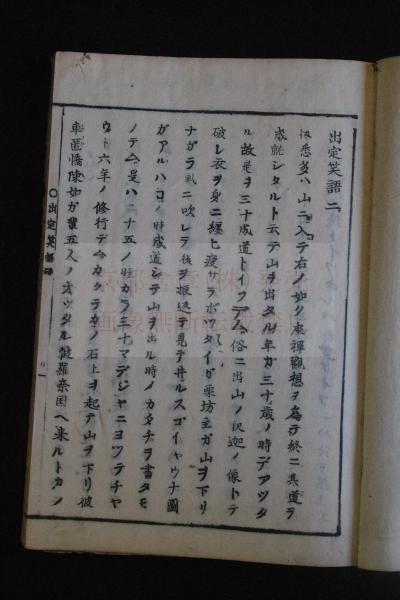 出定笑語二
扨悉多ハ山ニ入テ右ノ如ク座禪觀想ヲ為テ終ニ其道ヲ
成就シタルト云テ山ヲ出タル年ガ三十歳ノ時デアツタ
ル故是ヲ三十成道トイフデ今俗ニ出山ノ釈迦ノ像トテ
破レ衣ヲ身ニ纏ヒ瘦サラボツタイ乞栗坊主ガ山ヲ下リ
ナガラ風ニ吹レテ後ヲ振返テ見テ井ルスゴイヤウナ圖
ガアルハコノ時成道シテ山ヲ出ル時ノカタチヲ書タモ
ノデ今是ハ二十五ノ時カラ三十マデジヤニヨツテチヤ
ウト六年ノ修行デ今カクテカノ石上ヲ起テ山ヲ下リ彼
車匿憍陳如ガ輩五人ノオツタル健羅奈国ヘ来ルトカノ
〇出定笑語
一